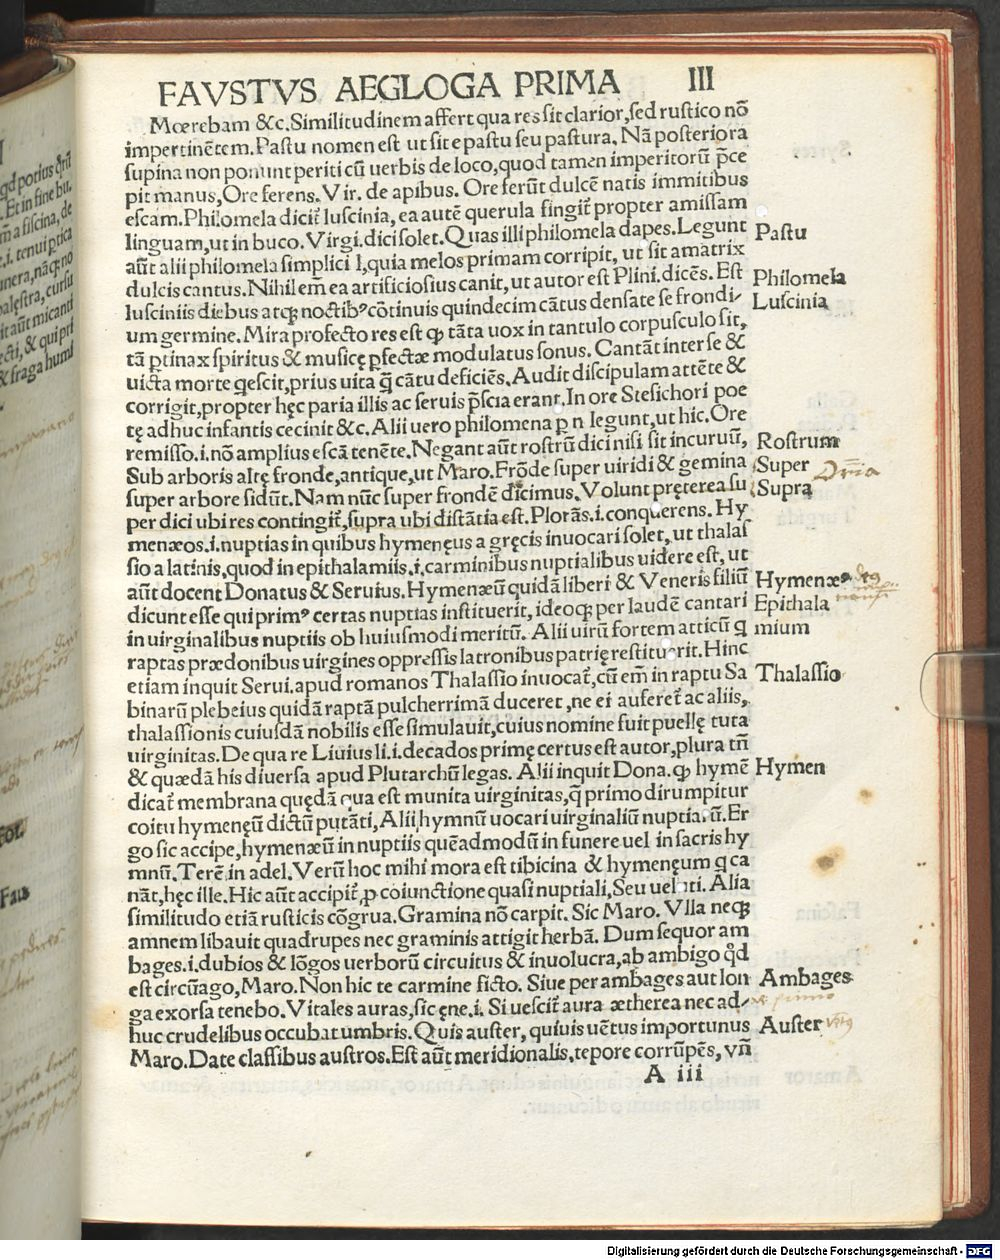 FAVSTVS AEGLOGA PRIMA III
Mœrebam &c. Similitudinem affert qua res sit clarior, sed rustico nõ
impertinẽtem. Pastu nomen est ut sit e pastu seu pastura. Nã posteriora
supina non ponunt periti cũ uerbis de loco, quod tamen imperitorũ p̄ce
pit manus, Ore ferens. Vir. de apibus. Ore ferũt dulcẽ natis immitibus
escam. Philomela dicit̃ luscinia, ea autẽ querula fingit̃ propter amissam
linguam, ut in buco. Virgi. dici solet. Quas illi philomela dapes. Legunt
aũt alii philomela simplici l, quia melos primam corripit, ut sit amatrix
dulcis cantus. Nihil em̃ ea artificiosius canit, ut autor est Plini. dicẽs. Est
lusciniis diebus atq; noctibꝰ cõtinuis quindecim cãtus densate se frondi-
um germine. Mira profecto res est ꝙ tãta uox in tantulo corpusculo sit,
tã ptinax spiritus & musicę pfectæ modulatus sonus. Cantãt inter se &
uicta morte q̃escit, prius uita q̃ cãtu deficiẽs. Audit discipulam attẽte &
corrigit, propter hęc paria illis ac seruis p̄scia erant. In ore Stesichori poe
tę adhuc infantis cecinit &c. Alii uero philomena p n legunt, ut hic. Ore
remisso. i. nõ amplius escã tenẽte. Negant aũt rostrũ dici nisi sit incuruũ,
Sub arboris altę fronde, antique, ut Maro. Frõde super uiridi & gemina
super arbore sidũt. Nam nũc super frondẽ dicimus. Volunt pręterea su
per dici ubi res contingit̃, supra ubi distãtia est. Plorãs. i. conquerens. Hy
menæos. i. nuptias in quibus hymenęus a gręcis inuocari solet, ut thalas
sio a latinis, quod in epithalamiis. i. carminibus nuptialibus uidere est, ut
aũt docent Donatus & Seruius. Hymenæũ quidã liberi & Veneris filiũ
dicunt esse qui primꝰ certas nuptias instituerit, ideoq; per laudẽ cantari
in uirginalibus nuptiis ob huiusmodi meritũ. Alii uirũ fortem atticũ q
raptas prædonibus uirgines oppressis latronibus patrię restituerit. Hinc
etiam inquit Serui. apud romanos Thalassio inuocat̃, cũ em̃ in raptu Sa
binarũ plebeius quidã raptã pulcherrimã duceret, ne ei auferet̃ ac aliis,
thalassionis cuiusdã nobilis esse simulauit, cuius nomine fuit puellę tuta
uirginitas. De qua re Liuius li. i. decados primę certus est autor, plura tñ
& quædã his diuersa apud Plutarchũ legas. Alii inquit Dona. ꝙ hymẽ
dicat̃ membrana quędã qua est munita uirginitas, q̃ primo dirumpitur
coitu hymenęũ dictũ putãti, Alii hymnũ uocari uirginaliũ nuptiarũ. Er
go sic accipe, hymenæũ in nuptiis quẽadmodũ in funere uel in sacris hy
mnũ. Terẽ. in adel. Verũ hoc mihi mora est tibicina & hymenęum q ca
nãt, hęc ille. Hic aũt accipit̃, p coiunctione quasi nuptiali, Seu ueluti. Alia
similitudo etiã rusticis cõgrua. Gramina nõ carpit. Sic Maro. Vlla neq;
amnem libauit quadrupes nec graminis attigit herbã. Dum sequor am
bages. i. dubios & lõgos uerborũ circuitus & inuolucra, ab ambigo q̊d
est circũago, Maro. Non hic te carmine ficto. Siue per ambages aut lon
ga exorsa tenebo. Vitales auras, sic ęne. i. Si uescit̃ aura ætherea nec ad-
huc crudelibus occubat umbris. Quis auster, quiuis uẽtus importunus
Maro. Date classibus austros. Est aũt meridionalis, tepore corrũpẽs, vñ
A iii
Pastu
Philomela
Luscinia
Rostrum
Super
Supra
Hymenæꝰ
Epithala
mium
Thalassio
Hymen
Ambages
Auster
Digitalisierung gefördert durch die Deutsche Forschungsgemeinschaft - DFG